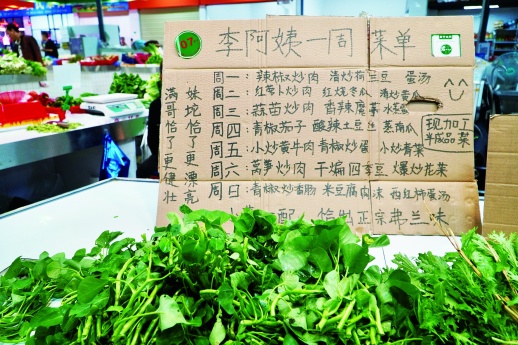 07
李阿姨一周菜单
周一：辣椒炒肉 清炒荷兰豆 蛋汤
周二：红萝卜炒肉 红烧冬瓜 清炒黄瓜
周三：蒜苗炒肉 香辣魔芋 水蒸蛋
周四：青椒茄子 酸辣土豆丝 蒸南瓜
周五：小炒黄牛肉 青椒炒蛋 小炒香菜
周六：莴笋炒肉 干煸四季豆 爆炒花菜
周日：青椒炒香肠 米豆腐肉沫 西红柿蛋汤
满哥恰了更健壮
妹坨恰了更漂亮
现加工
半成品菜
配 恰出正宗弗兰味